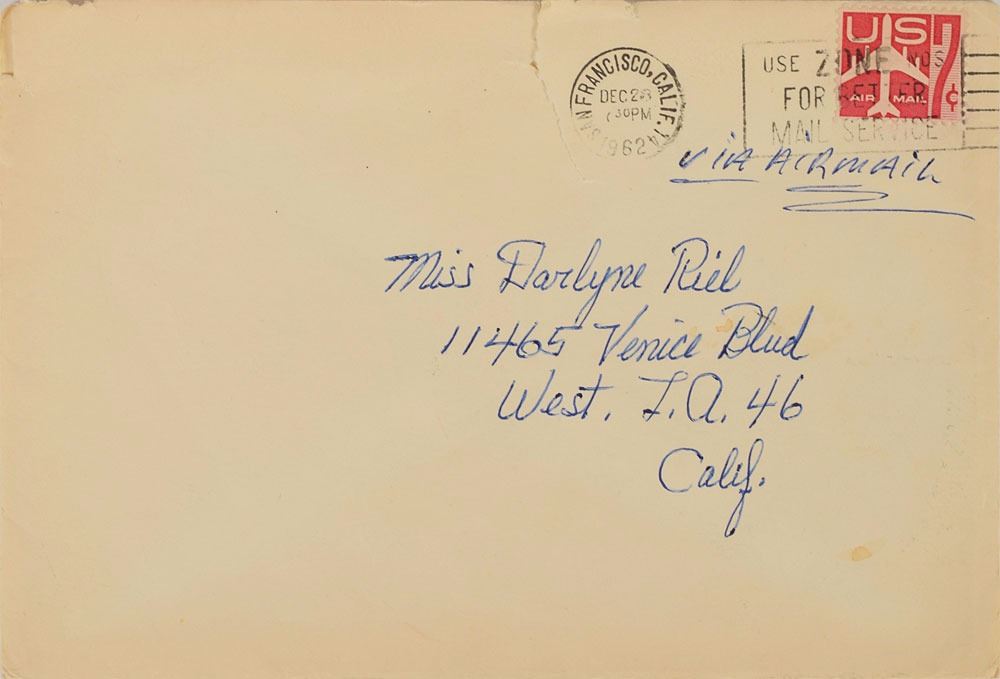 SAN FRANCISCO, CALIF. 14
DEC 28
30 PM
1962
USE ZONE NOS
FOR BETTER
MAIL SERVICE
US
AIR MAIL
7¢
VIA AIRMAIL
Miss Darlyne Riel
11465 Venice Blvd
West. L.A. 46
Calif.